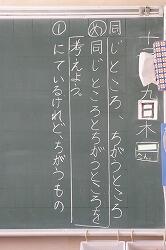 十 九日木
同じところ、ちがうところ
め同じところとちがうところを
考えよう。
①にているけれど、ちがうもの